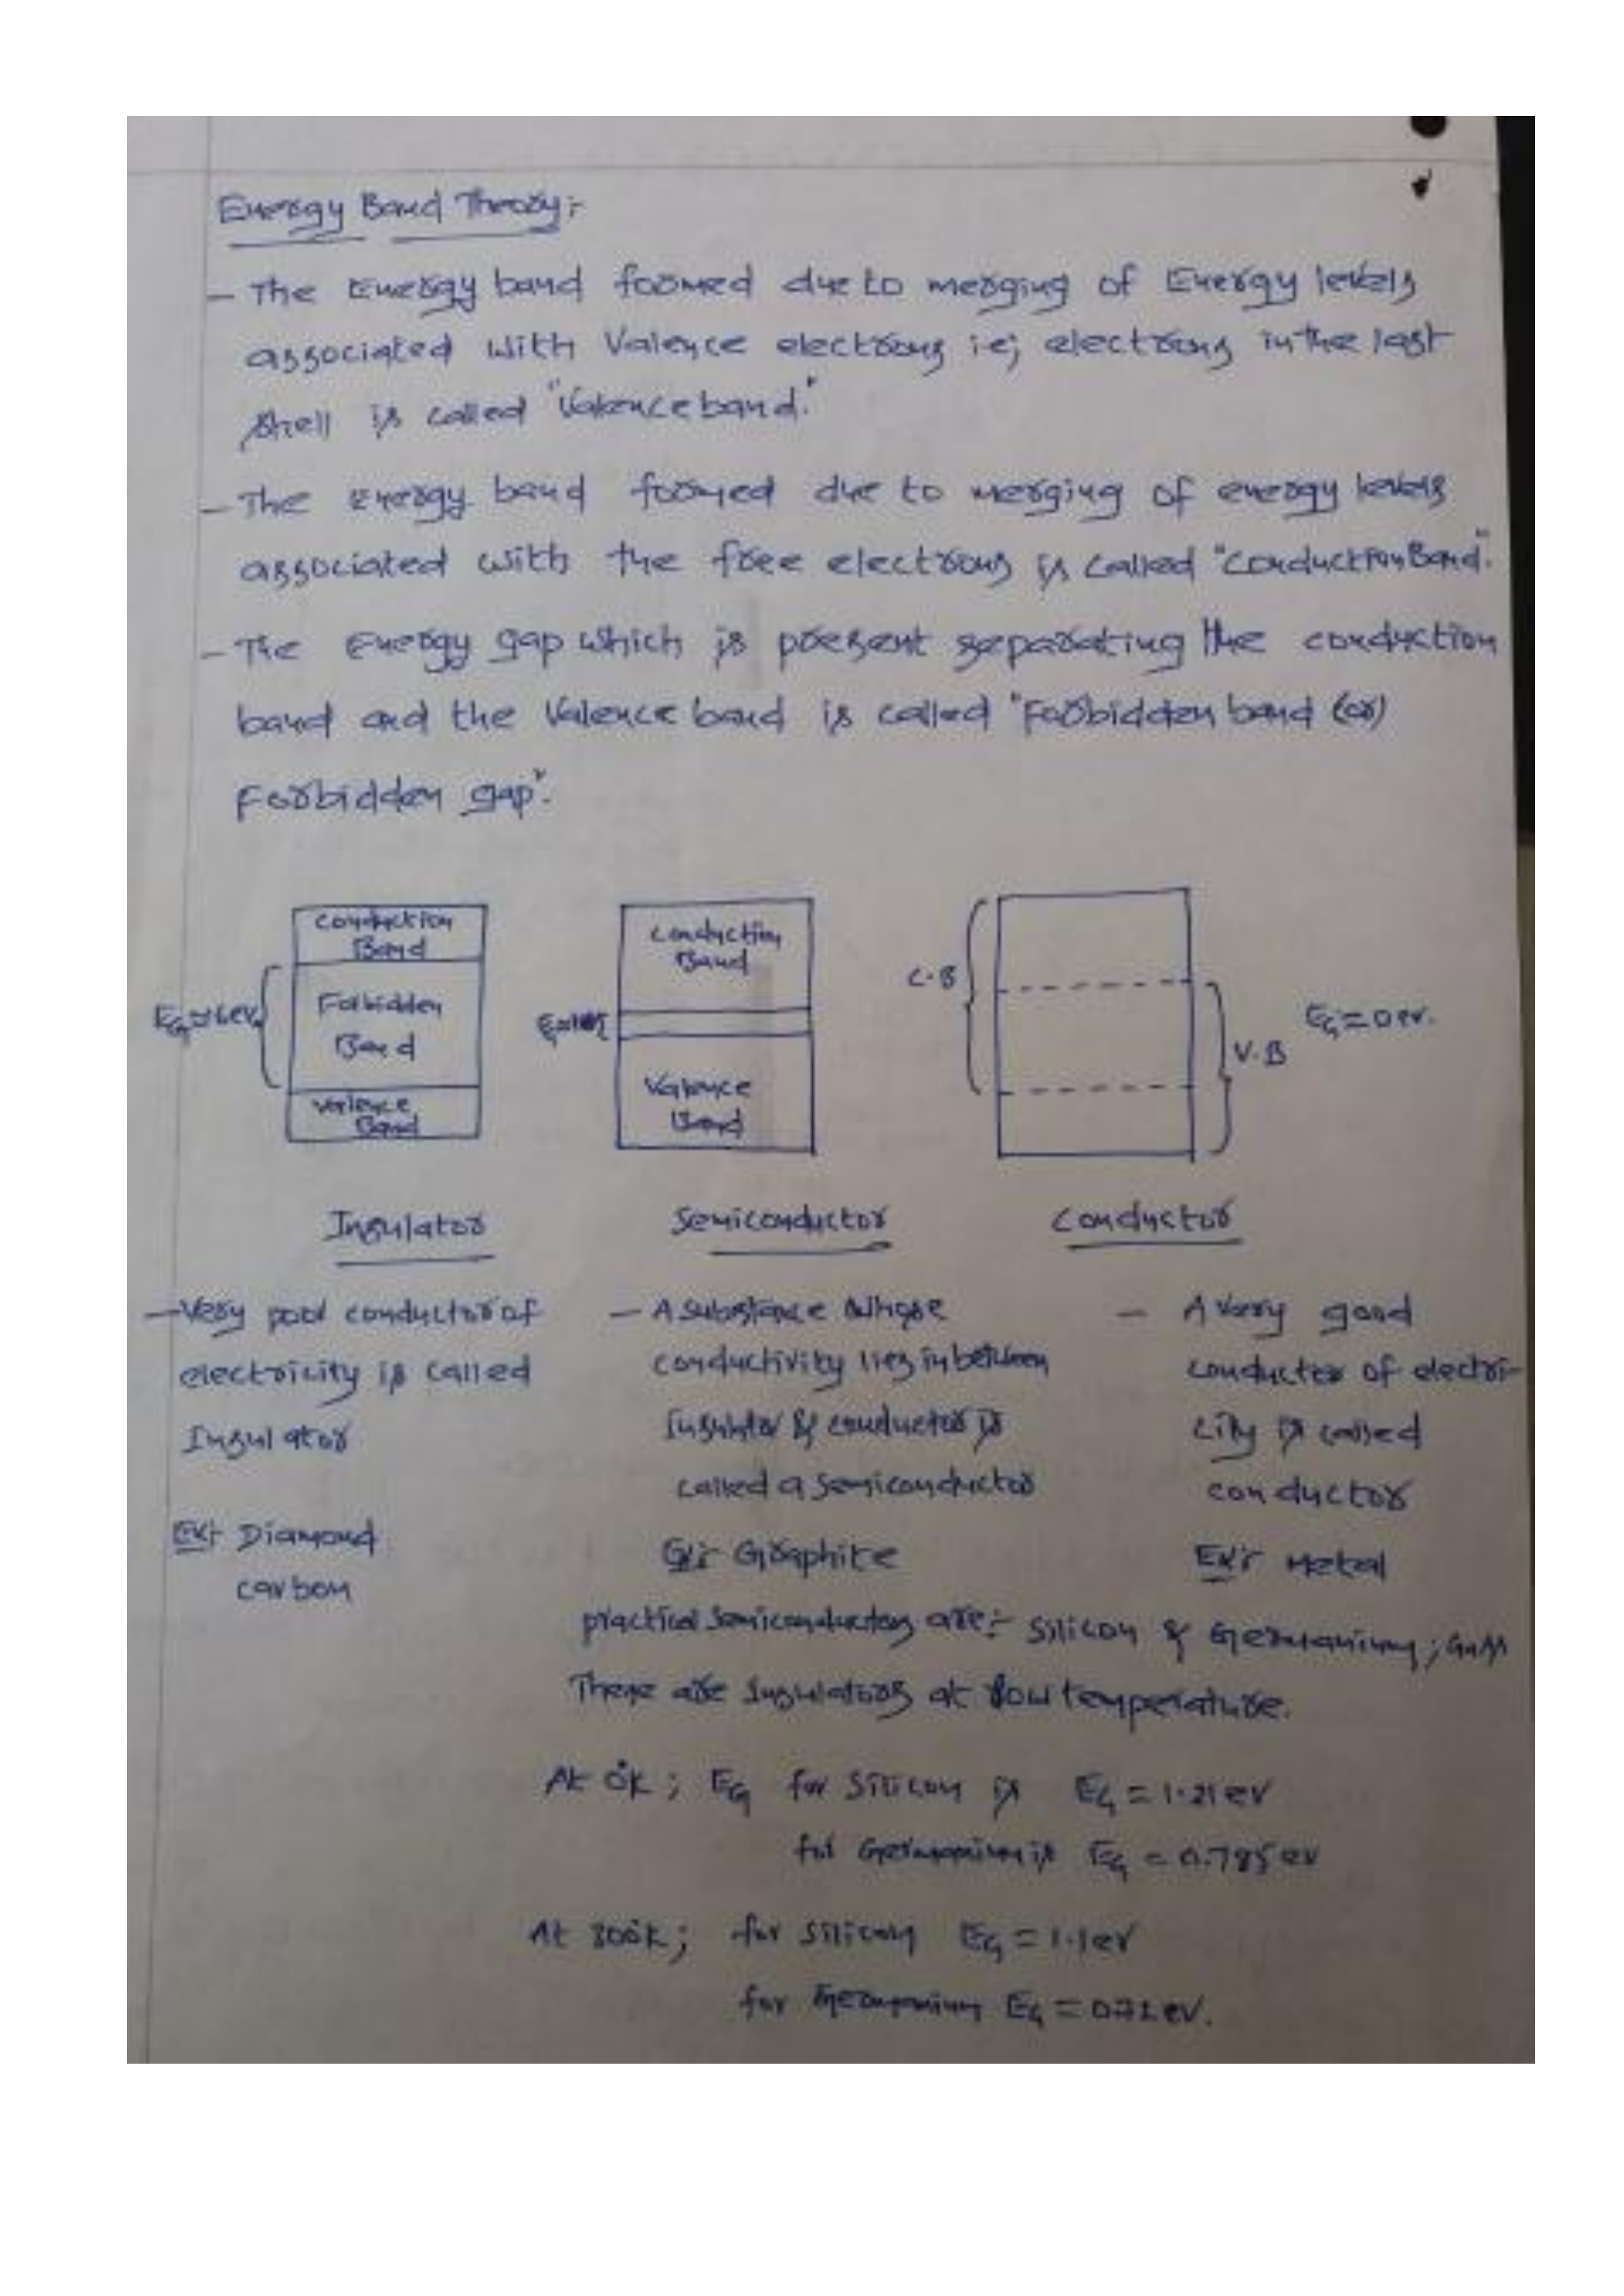 Energy Band Theory:-
- The Energy band formed due to merging of Energy levels
associated with Valence electrons ie; electrons in the last
shell is called "Valence band."
- The energy band formed due to merging of energy levels
associated with the free electrons is called "Conduction Band".
- The Energy gap which is present separating the conduction
band and the Valence band is called "Forbidden band (or)
Forbidden gap".
Conduction
Band
Forbidden
Band
Valence
Band
EG≃6ev
Conduction
Band
Valence
Band
C.B
V.B
EG=0ev.
Insulator
Semiconductor
Conductor
- Very poor conductor of
electricity is called
Insulator
Ex:- Diamond
carbon
- A substance whose
conductivity lies in between
Insulator & conductor is
called a Semiconductor
Ex:- Graphite
- A very good
conductor of electri-
city is called
conductor
Ex:- Metal
practical Semiconductors are:- Silicon & Germanium; GaAs
These are Insulators at low temperature.
At 0°K; EG for Silicon is EG = 1.21ev
for Germanium is EG = 0.785ev
At 300°K; for Silicon EG = 1.1ev
for Germanium EG = 0.72ev.